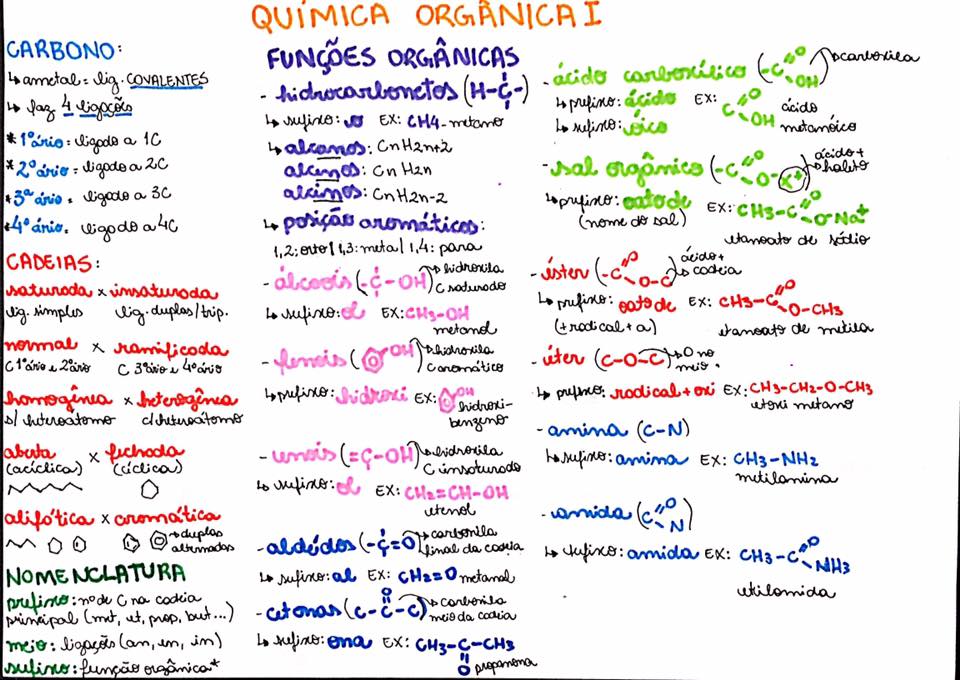 QUÍMICA ORGÂNICA I
CARBONO:
↳ ametal = lig. COVALENTES
↳ faz 4 ligações
* 1º ário: ligado a 1C
* 2º ário: ligado a 2C
* 3º ário: ligado a 3C
* 4º ário: ligado a 4C
CADEIAS:
saturada x insaturada
lig. simples lig. duplas/trip.
normal x ramificada
C 1ário e 2ário C 3ário e 4ário
homogênia x heterogênia
s/ heteroátomo c/ heteroátomo
aberta x fechada
(acíclica) (cíclica)
alifática x aromática
↳ duplas alternadas
NOMENCLATURA
prefixo: nº de C na cadeia
principal (met, et, prop, but...)
meio: ligações (an, en, in)
sufixo: função orgânica*
FUNÇÕES ORGÂNICAS
- hidrocarbonetos (H-C-)
↳ sufixo: o EX: CH4 - metano
↳ alcanos: CnH2n+2
alcenos: CnH2n
alcinos: CnH2n-2
↳ posição aromáticos:
1,2: orto | 1,3: meta | 1,4: para
- álcoois (-C-OH) → hidroxila
C saturado
↳ sufixo: ol EX: CH3-OH
metanol
- fenois ( OH) → hidroxila
C aromático
↳ prefixo: hidroxi EX: OH
hidroxi-
benzeno
- enois (=C-OH) → hidroxila
C insaturado
↳ sufixo: ol EX: CH2=CH-OH
etenol
- aldeídos (-C=O) → carbonila
final da cadeia
↳ sufixo: al EX: CH2=O metanal
- cetonas (C-C-C) → carbonila
O meio da cadeia
↳ sufixo: ona EX: CH3-C-CH3
O propanona
- ácido carboxílico (-C O OH) → carboxila
↳ prefixo: ácido EX: C O OH ácido
↳ sufixo: óico metanóico
- sal orgânico (-C O O-X+) ácido + haleto
↳ prefixo: oato de EX: CH3-C O O-Na+
(nome do sal) etanoato de sódio
- éster (-C O O-C) ácido + cadeia
↳ prefixo: oato de EX: CH3-C O O-CH3
(+radical+a) etanoato de metila
- éter (C-O-C) → O no meio.
↳ prefixo: radical + oxi EX: CH3-CH2-O-CH3
etoxi metano
- amina (C-N)
↳ sufixo: amina EX: CH3-NH2
metilamina
- amida (C O N)
↳ sufixo: amida EX: CH3-C O NH3
etilamida